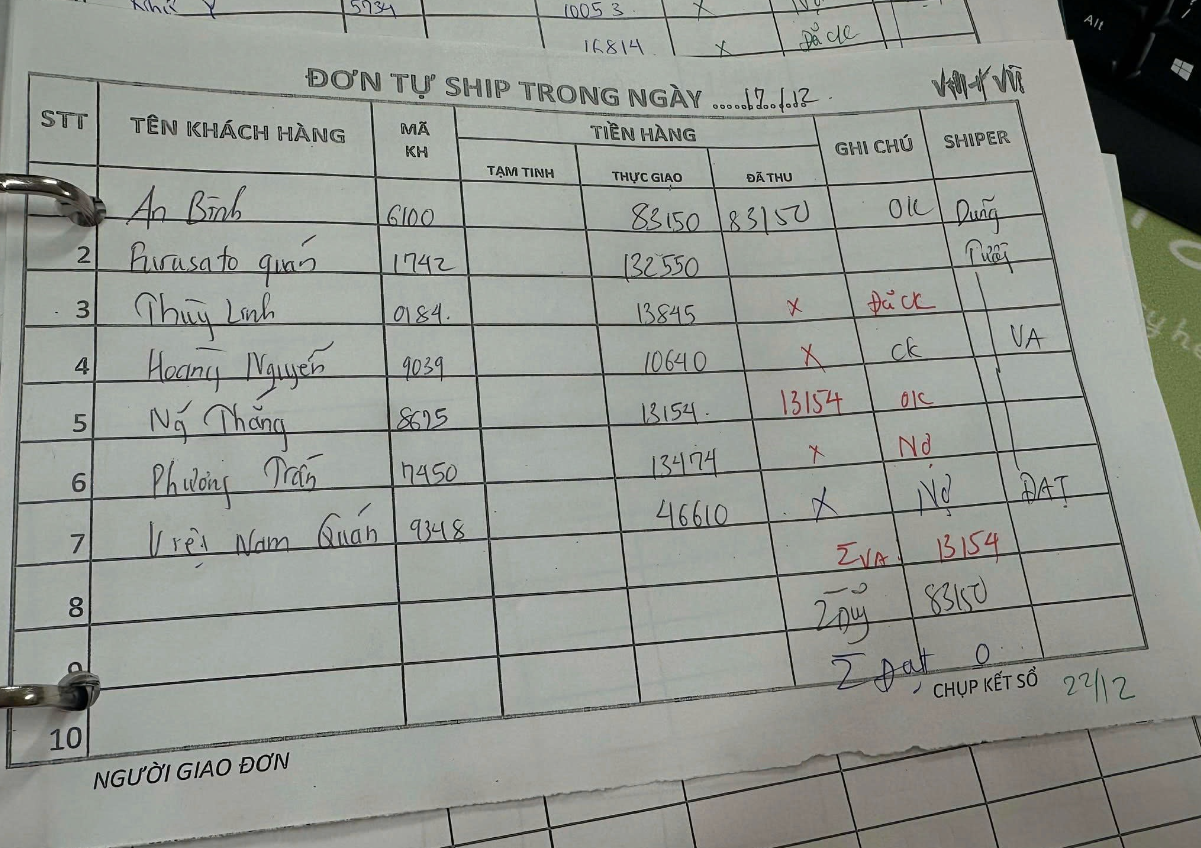 5734 10053 X
16814 X Đả CK
ĐƠN TỰ SHIP TRONG NGÀY ......17../..12
STT TÊN KHÁCH HÀNG MÃ KH TIỀN HÀNG GHI CHÚ SHIPER
TẠM TINH THỰC GIAO ĐÃ THU
An Bình 6100 83150 83150 OK Dung
2 Furusato quán 1742 132550
3 Thùy Linh 0184. 13845 X Đả CK
4 Hoàng Nguyễn 9039 10640 X CK VA
5 Ng Thắng 8695 13154. 13154 OK
6 Phương Trần 7450 13474 X Nợ
7 Việt Nam Quán 9348 46610 X Nợ ĐẠT
Σ VA. 13154
8 Σ 83150
9 Σ Đạt 0
10
CHỤP KẾT SỔ 22/12
NGƯỜI GIAO ĐƠN
Alt